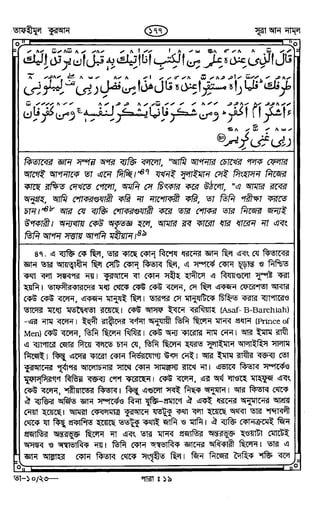 তাফহীমুল কুরআন
১৭৭
সূরা আন নামল
قَالَ الَّذِي عِنْدَهُ عِلْمٌ مِّنَ الْكِتٰبِ أَنَا اٰتِيْكَ بِهٖ قَبْلَ أَنْ يَّرْتَدَّ إِلَيْكَ
طَرْفُكَ ؕ فَلَمَّا رَاٰهُ مُسْتَقِرًّا عِنْدَهٗ قَالَ هٰذَا مِنْ فَضْلِ رَبِّيْ ۖ لِيَبْلُوَنِيْٓ
ءَاَشْكُرُ اَمْ اَكْفُرُ ؕ وَمَنْ شَكَرَ فَاِنَّمَا يَشْكُرُ لِنَفْسِهٖ ۚ وَمَنْ كَفَرَ فَاِنَّ
رَبِّيْ غَنِيٌّ كَرِيْمٌ
কিতাবের জ্ঞান সম্পন্ন অপর ব্যক্তি বললো, "আমি আপনার চোখের পলক ফেলার
আগেই আপনাকে তা এনে দিচ্ছি।"৪৭ যখনই সুলাইমান সেই সিংহাসন নিজের
কাছে রক্ষিত দেখতে পেলো, অমনি সে চিৎকার করে উঠলো, "এ আমার রবের
অনুগ্রহ, আমি শোকরগুযারী করি না নাশোকরী করি, তা তিনি পরীক্ষা করতে
চান।"৪৮ আর যে ব্যক্তি শোকরগুযারী করে তার শোকর তার নিজের জন্যই
উপকারী। অন্যথায় কেউ অকৃতজ্ঞ হলে, আমার রব কারো ধার ধারেন না এবং
তিনি আপন সত্তায় আপনি মহীয়ান।৪৯
৪৭. এ ব্যক্তি কে ছিল, তার কাছে কোন্ বিশেষ ধরনের জ্ঞান ছিল এবং যে কিতাবের
জ্ঞান তার আয়ত্বাধীন ছিল সেটি কোন্ কিতাব ছিল, এ সম্পর্কে কোন চূড়ান্ত ও নিশ্চিত
কথা বলা সম্ভবপর নয়। কুরআনে বা কোন সহীহ হাদীসে এ বিষয়গুলো সুস্পষ্ট করা
হয়নি। তাফসীরকারদের মধ্য থেকে কেউ কেউ বলেন, সে ছিল একজন ফেরেশতা আবার
কেউ কেউ বলেন, একজন মানুষই ছিল। তারপর সে মানুষটিকে চিহ্নিত করার ব্যাপারেও
তাদের মধ্যে মতদ্বৈধতা রয়েছে। কেউ আসফ ইবনে বরখিয়াহ (Asaf-B-Barchiah)
-এর নাম বলেন। ইহুদী রাব্বীদের বর্ণনা অনুযায়ী তিনি ছিলেন মানব প্রধান (Prince of
Men) কেউ বলেন, তিনি ছিলেন খিযির। কেউ অন্য কারোর নাম নেন। আর ইমাম রাযী
এ ব্যাপারে জোর দিয়ে বলতে চান যে, তিনি ছিলেন হযরত সুলাইমান আলাইহিস সালাম
নিজেই। কিন্তু এদের কারো কোন নির্ভরযোগ্য উৎস নেই। আর ইমাম রাযীর বক্তব্য তো
কুরআনের পূর্বাপর আলোচনার সাথে কোন সামঞ্জস্য রাখে না। এভাবে কিতাব সম্পর্কেও
মুফাস্‌সিরগণ বিভিন্ন বক্তব্য পেশ করেছেন। কেউ বলেন, এর অর্থ লাওহে মাহফুজ এবং
কেউ বলেন, শরীয়াতের কিতাব। কিন্তু এগুলো সবই নিছক অনুমান। আর কিতাব থেকে
ঐ ব্যক্তির অর্জিত জ্ঞান সম্পর্কেও বিনা যুক্তি-প্রমাণে ঐ একই ধরনের অনুমানের আশ্রয়
নেয়া হয়েছে। আমরা কেবলমাত্র কুরআনে যতটুকু কথা বলা হয়েছে অথবা তার শব্দাবলী
থেকে যা কিছু প্রকাশিত হয়েছে ততটুকু কথাই জানি ও মানি। ঐ ব্যক্তি কোনক্রমেই জিন
প্রজাতির অন্তরভুক্ত ছিলেন না এবং তার মানব প্রজাতির অন্তরভুক্ত হওয়াটা মোটেই
অসম্ভব ও অস্বাভাবিক নয়। তিনি কোন অস্বাভাবিক জ্ঞানের অধিকারী ছিলেন। তার এ
জ্ঞান আল্লাহর কোন কিতাব থেকে সংগৃহীত ছিল। জিন নিজের দৈহিক শক্তি বলে
তা-১০/২৩
পারা ঃ ১৯